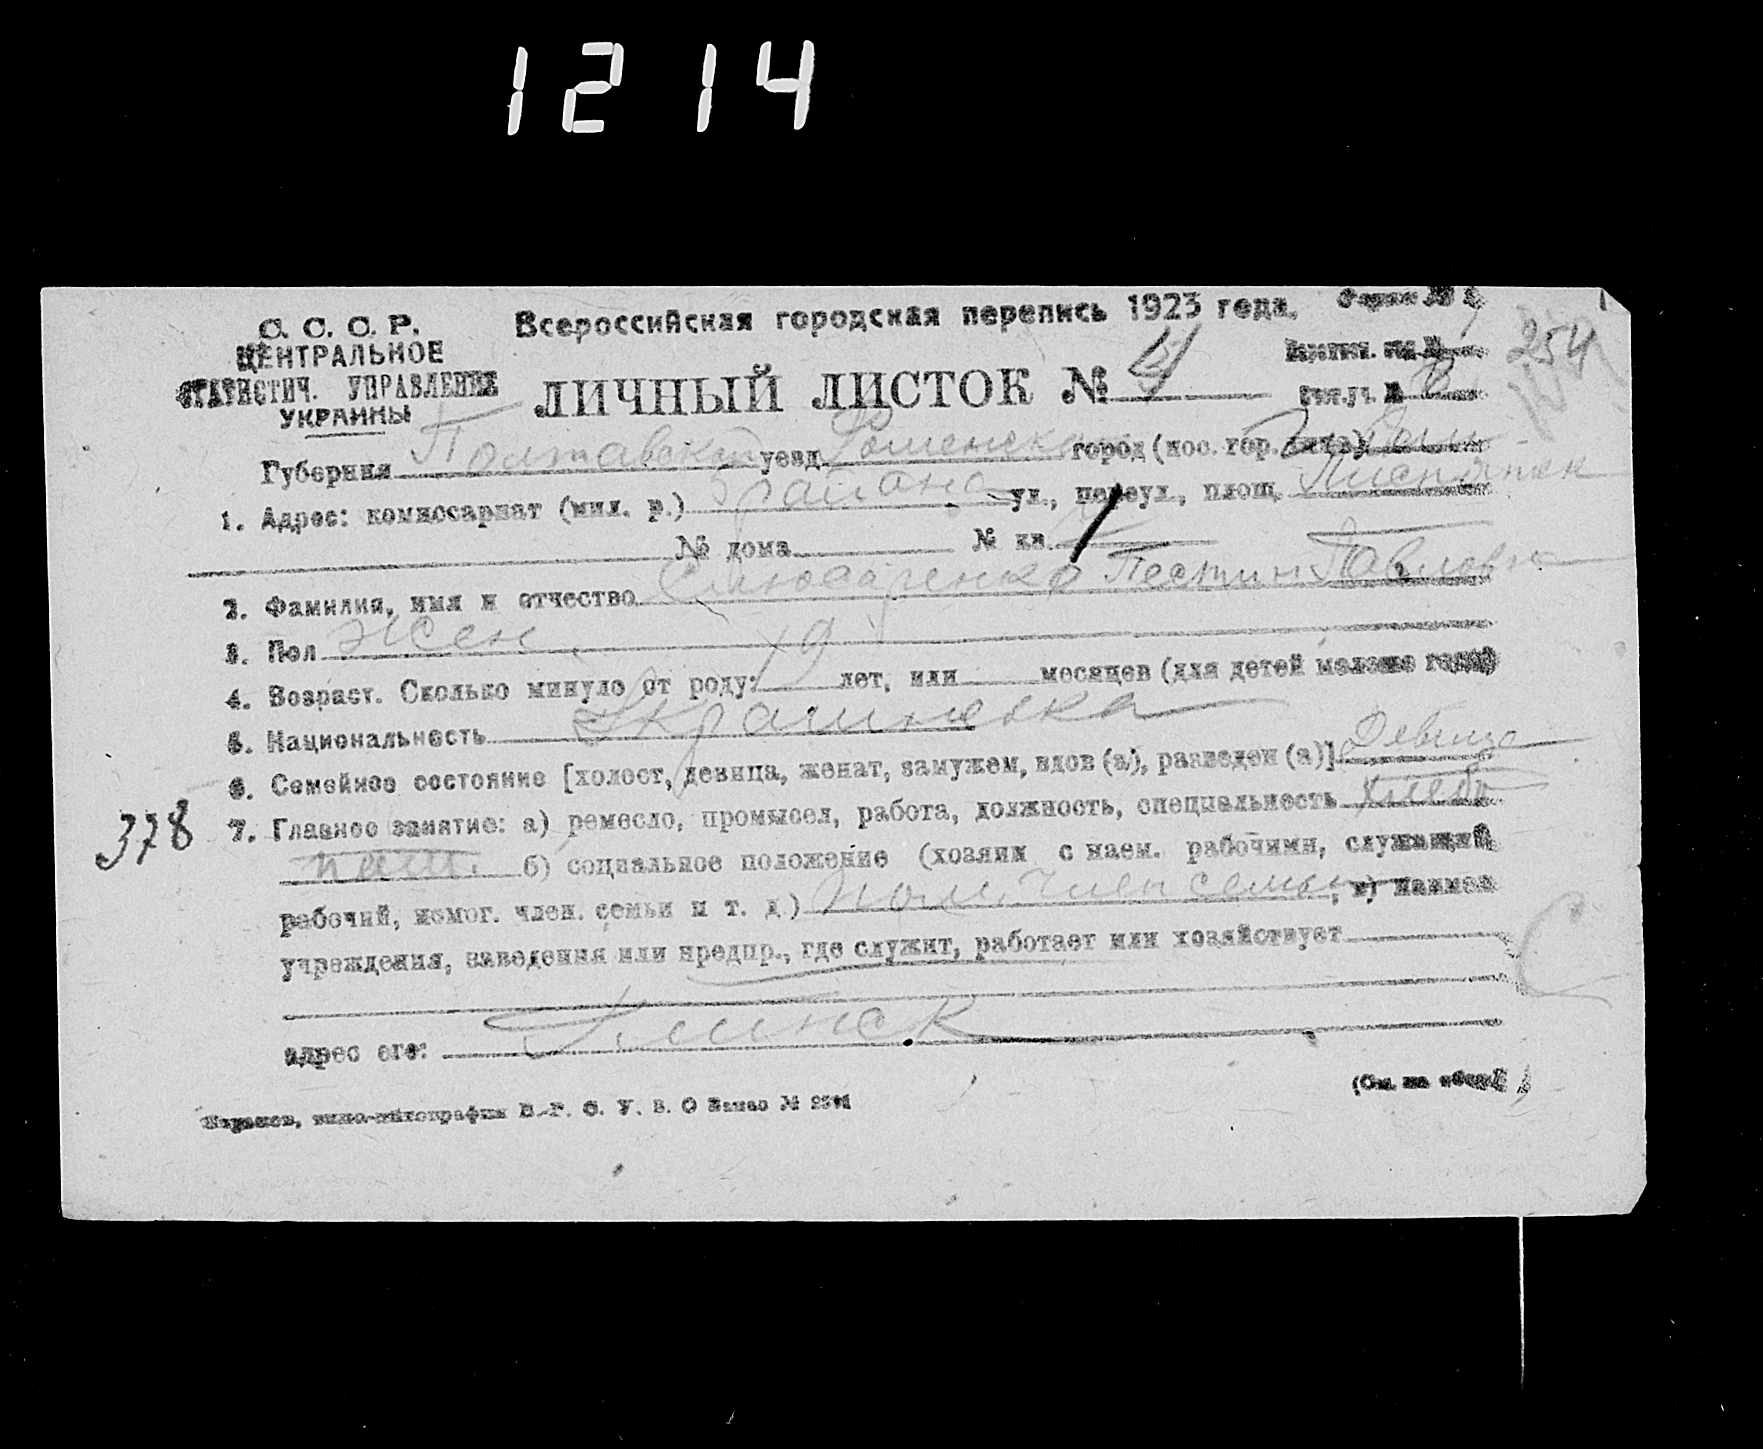 1214
С. С. С. Р.
ЦЕНТРАЛЬНОЕ
СТАТИСТИЧ. УПРАВЛЕНИЕ
УКРАИНЫ
Всероссийская городская перепись 1923 года.
ЛИЧНЫЙ ЛИСТОК №
254
Губерния Полтавск уезд Роменск город (пос. гор. типа)
1. Адрес: комиссариат (мил. р.) района ул., переул., площ.
№ дома № кв.
2. Фамилия, имя и отчество Слюсаренко Павловна
3. Пол жен
4. Возраст. Сколько минуло от роду: 19 лет, или месяцев (для детей моложе года)
5. Национальность Украинска
6. Семейное состояние [холост, девица, женат, замужем, вдов (а), разведен (а)] Девица
378
7. Главное занятие: а) ремесло, промысел, работа, должность, специальность хлебо
паш. б) социальное положение (хозяин с наем. рабочими, служащий
рабочий, помог. член. семьи и т. д.) пом. член семьи, в) наимен
учреждения, заведения или предпр., где служит, работает или хозяйствует
адрес его:
(См. на обор.)